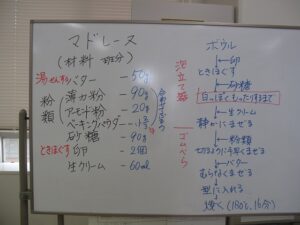 マドレーヌ
(材料 班分)
湯せんバター - 50g
粉類
薄力粉 - 90g
アーモンド粉 - 20g
ベーキングパウダー - 小
砂糖 - 90g
ときほぐす 卵 - 2個
生クリーム - 60ml
ボウル
泡立て器
←卵
ときほぐす
←砂糖
白っぽくもったりするまで
←生クリーム
静かにまぜる
ゴムべら
←粉類
切るように手早くまぜる
←バター
むらなくまぜる
↓
型に入れる
↓
焼く (180℃、16分)